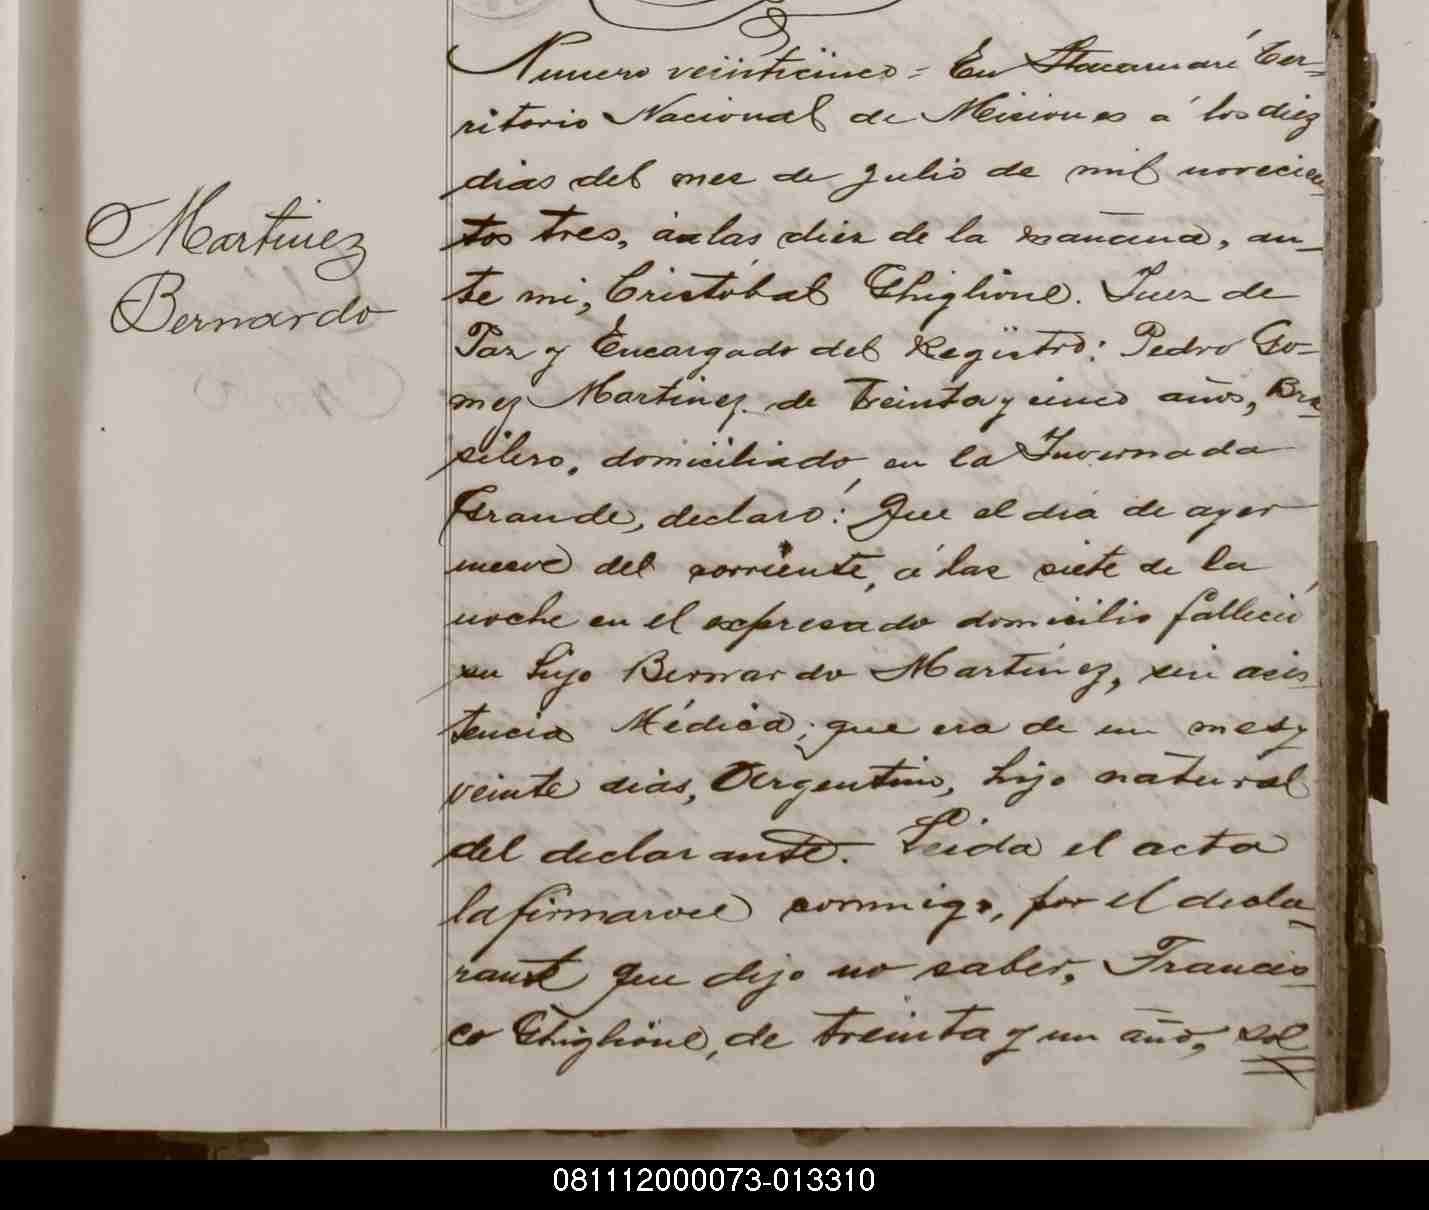 Martinez
Bernardo
Numero veinticinco = En Itacaruaré Ter-
ritorio Nacional de Misiones á los diez
dias del mes de Julio de mil novecien-
tos tres, á las diez de la mañana, an-
te mi, Cristóbal Ghiglione. Juez de
Paz y Encargado del Registro: Pedro Go-
mez Martinez. de treinta y cinco años, Bra-
silero, domiciliado en la Invernada
Grande, declaró: Que el dia de ayer
nueve del corriente, á las siete de la
noche en el expresado domicilio falleció
su hijo Bernardo Martinez, sin acis-
tencia Médica; que era de un mes y
veinte dias, Argentino, hijo natural
del declarante. Leida el acta
la firmaron conmigo, por el decla-
rante que dijo no saber, Francis-
co Ghiglione, de treinta y un año, sol
081112000073-013310